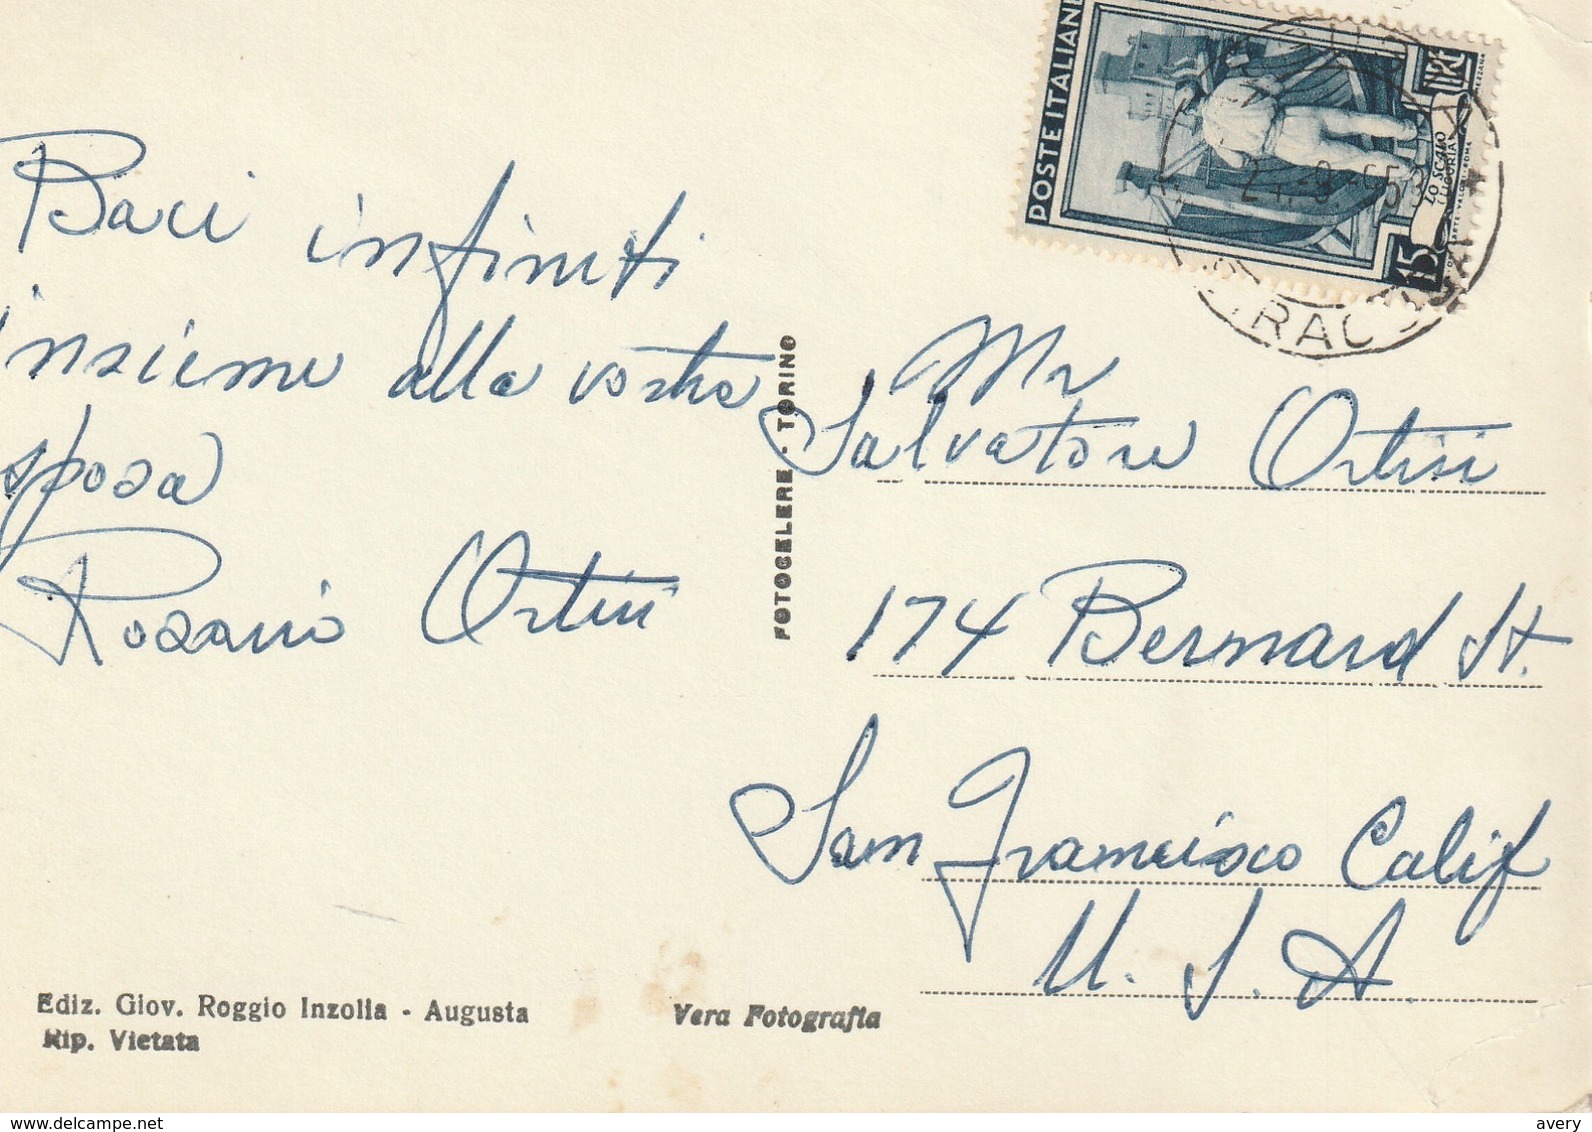 Baci infiniti
insieme alla vostra
sposa
Rosario Ortisi
FOTOCELERE - TORINO
POSTE ITALIANE
LIRE
15
LO SCALO
LIGURIA
SIRACUSA
Mr
Salvatore Ortisi
174 Bernard St.
San Francisco Calif
U. S. A.
Ediz. Giov. Roggio Inzolia - Augusta
Rip. Vietata
Vera Fotografia
delcampe.net
avery